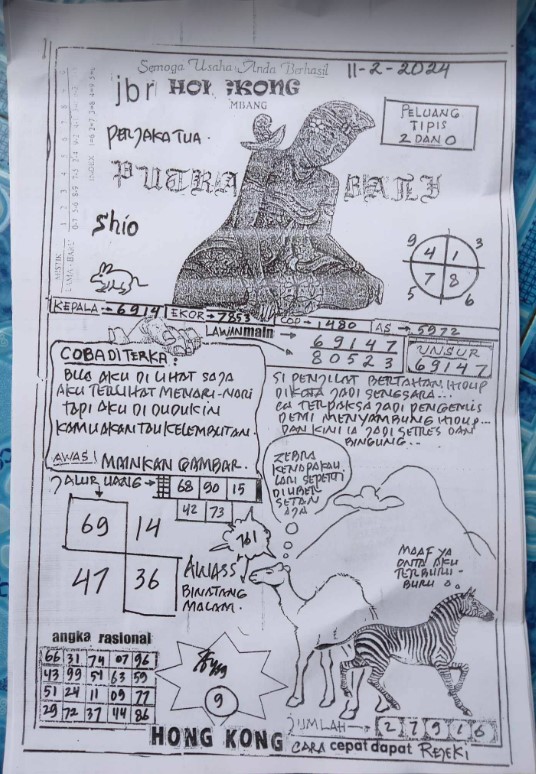 Semoga Usaha Anda Berhasil
11-2-2024
jbr HONGKONG
MBANG
PERJAKATUA.
PELUANG
TIPIS
2 DAN 0
PUTRA BALI
Shio
9 3
4 1
7 8
5 6
KEPALA → 6914 EKOR → 7853 COP → 1480 AS → 5972
LAWANmain → 69147
→ 80523
UNSUR
69147
COBA DITERKA:
BILA AKU DI LIHAT SAJA
AKU TERLIHAT MENARI-NARI
TAPI AKU DI DUDUKIN
KAMU AKAN TAU KELEMBUTAN.
AWAS! MAINKAN GAMBAR.
SI PENJILAT BERTAHAN HIDUP
DIKOTA JADI SENGSARA...
IA TERPAKSA JADI PENGEMIS
DEMI MENYAMBUNG HIDUP...
DAN KINI IA JADI SETRES DAN
BINGUNG..
JALUR UANG → 68 90 15
42 73
69 14
47 36
761
AWASS
BINATANG
MALAM.
ZEBRA
KENAPA KAU
LARI SEPERTI
DIUBER
SETAN
AJA
MAAF YA
ONTA AKU
TERBURU-
BURU
angka rasional
66 31 74 07 96
43 99 54 63 59
51 24 11 09 77
29 72 37 44 86
9
JUMLAH → 2 7 9 1 6
HONG KONG CARA cepat dapat REJEKI